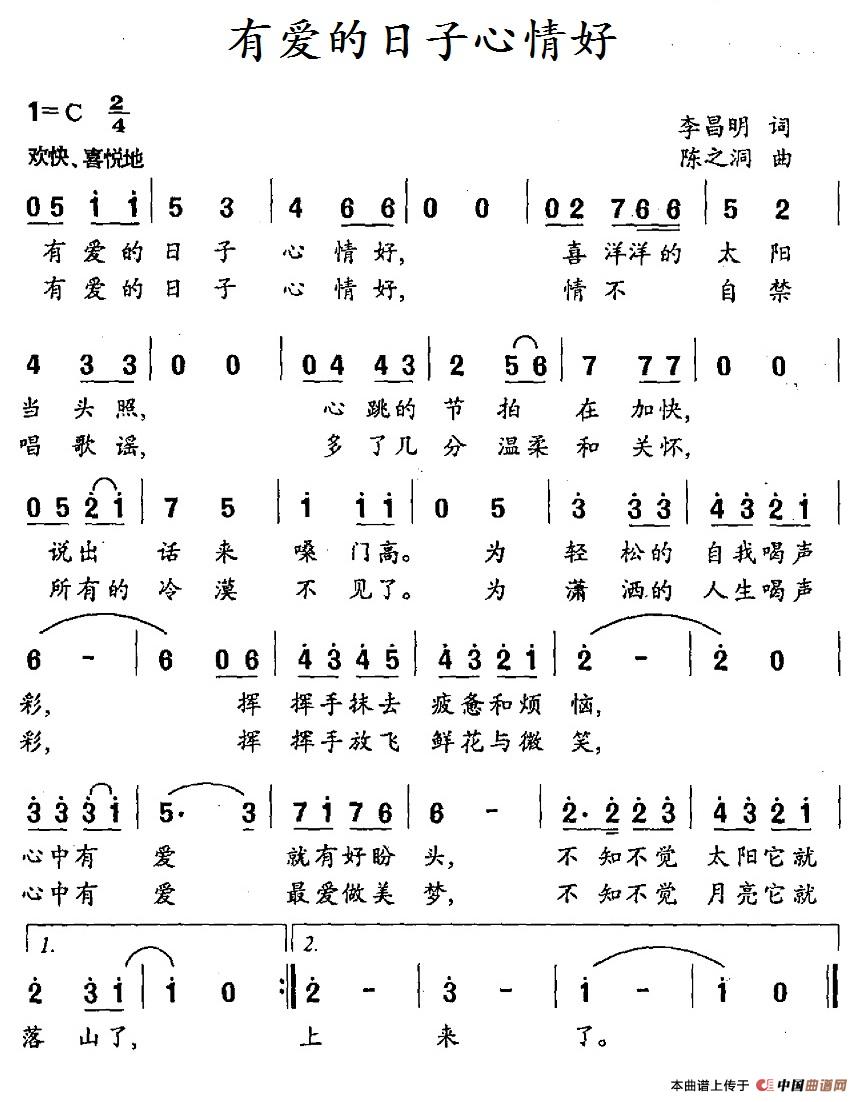 有爱的日子心情好
1=C 2/4
李昌明 词
欢快、喜悦地
陈之洞 曲
05 1̇ 1̇ | 5 3 | 4 66 | 0 0 | 02 766 | 5 2 |
有爱的日子 心情好, 喜洋洋的太阳
有爱的日子 心情好, 情不 自禁
4 33 | 0 0 | 04 43 | 2 56 | 7 77 | 0 0 |
当头照, 心跳的节拍 在加快,
唱歌谣, 多了几分温柔和关怀,
05 2̇1̇ | 7 5 | 1̇ 1̇1̇ | 0 5 | 3̇ 3̇3̇ | 4̇3̇2̇1̇ |
说出 话来 嗓门高。 为 轻松的 自我喝声
所有的冷漠 不见了。 为 潇洒的 人生喝声
6 - | 6 06 | 4̇3̇ 4̇5̇ | 4̇3̇ 2̇1̇ | 2̇ - | 2̇ 0
彩, 挥 挥手抹去 疲惫和烦恼,
彩, 挥 挥手放飞 鲜花与微笑,
3̇3̇ 3̇1̇ | 5· 3 | 71̇ 76 | 6 - | 2̇·2̇ 2̇3̇ | 4̇3̇ 2̇1̇ |
心中有 爱 就有好盼头, 不知不觉 太阳它就
心中有 爱 最爱做美梦, 不知不觉 月亮它就
1. 2.
2̇ 3̇1̇ | 1̇ 0 :‖ 2̇ - | 3̇ - | 1̇ - | 1̇ 0 ‖
落山了, 上 来 了。
本曲谱上传于 中国曲谱网